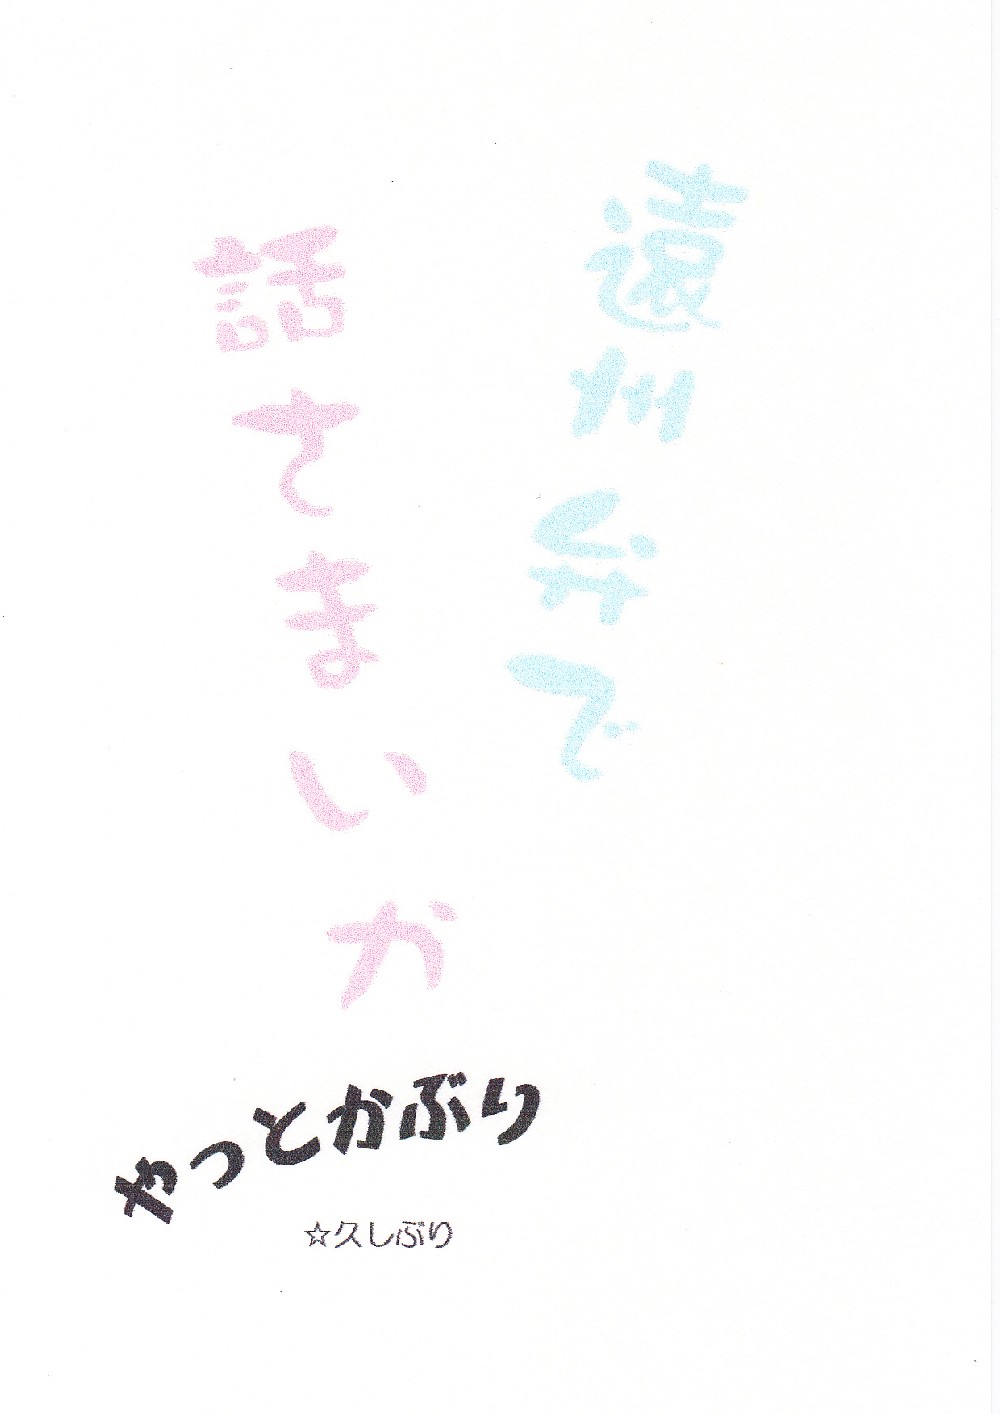 遠州弁で
話てまいか
やっとかぶり
☆久しぶり